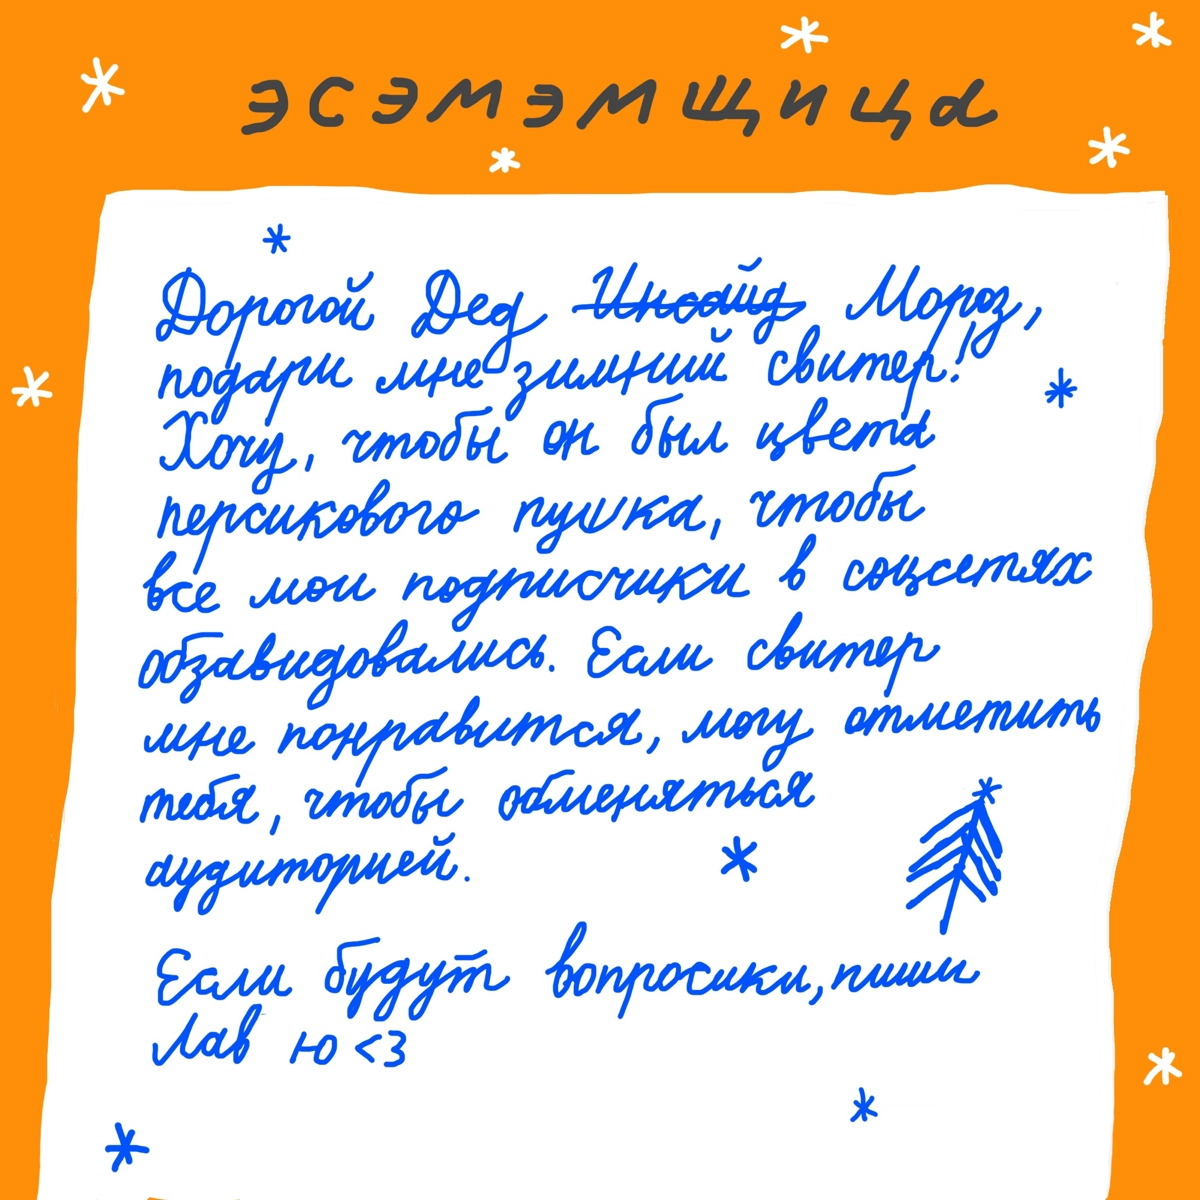 эсэмэмщица
Дорогой Дед Инсайд Мороз,
подари мне зимний свитер!
Хочу, чтобы он был цвета
персикового пушка, чтобы
все мои подписчики в соцсетях
обзавидовались. Если свитер
мне понравится, могу отметить
тебя, чтобы обменяться
аудиторией.
Если будут вопросики, пиши
Лав ю <3